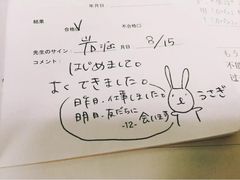 年月日
結果
合格 ✓ 不合格□
先生のサイン： 月日 8/15
コメント：
はじめまして。
よくできました。
昨日、仕事しました。
明日、友だちに
会います
うさぎ
-12-